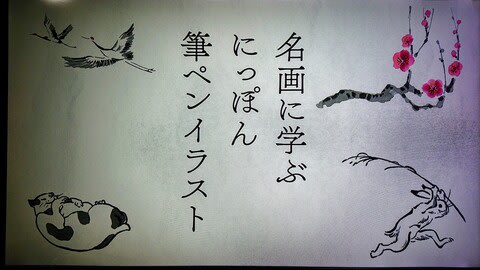 名画に学ぶ
にっぽん
筆ペンイラスト